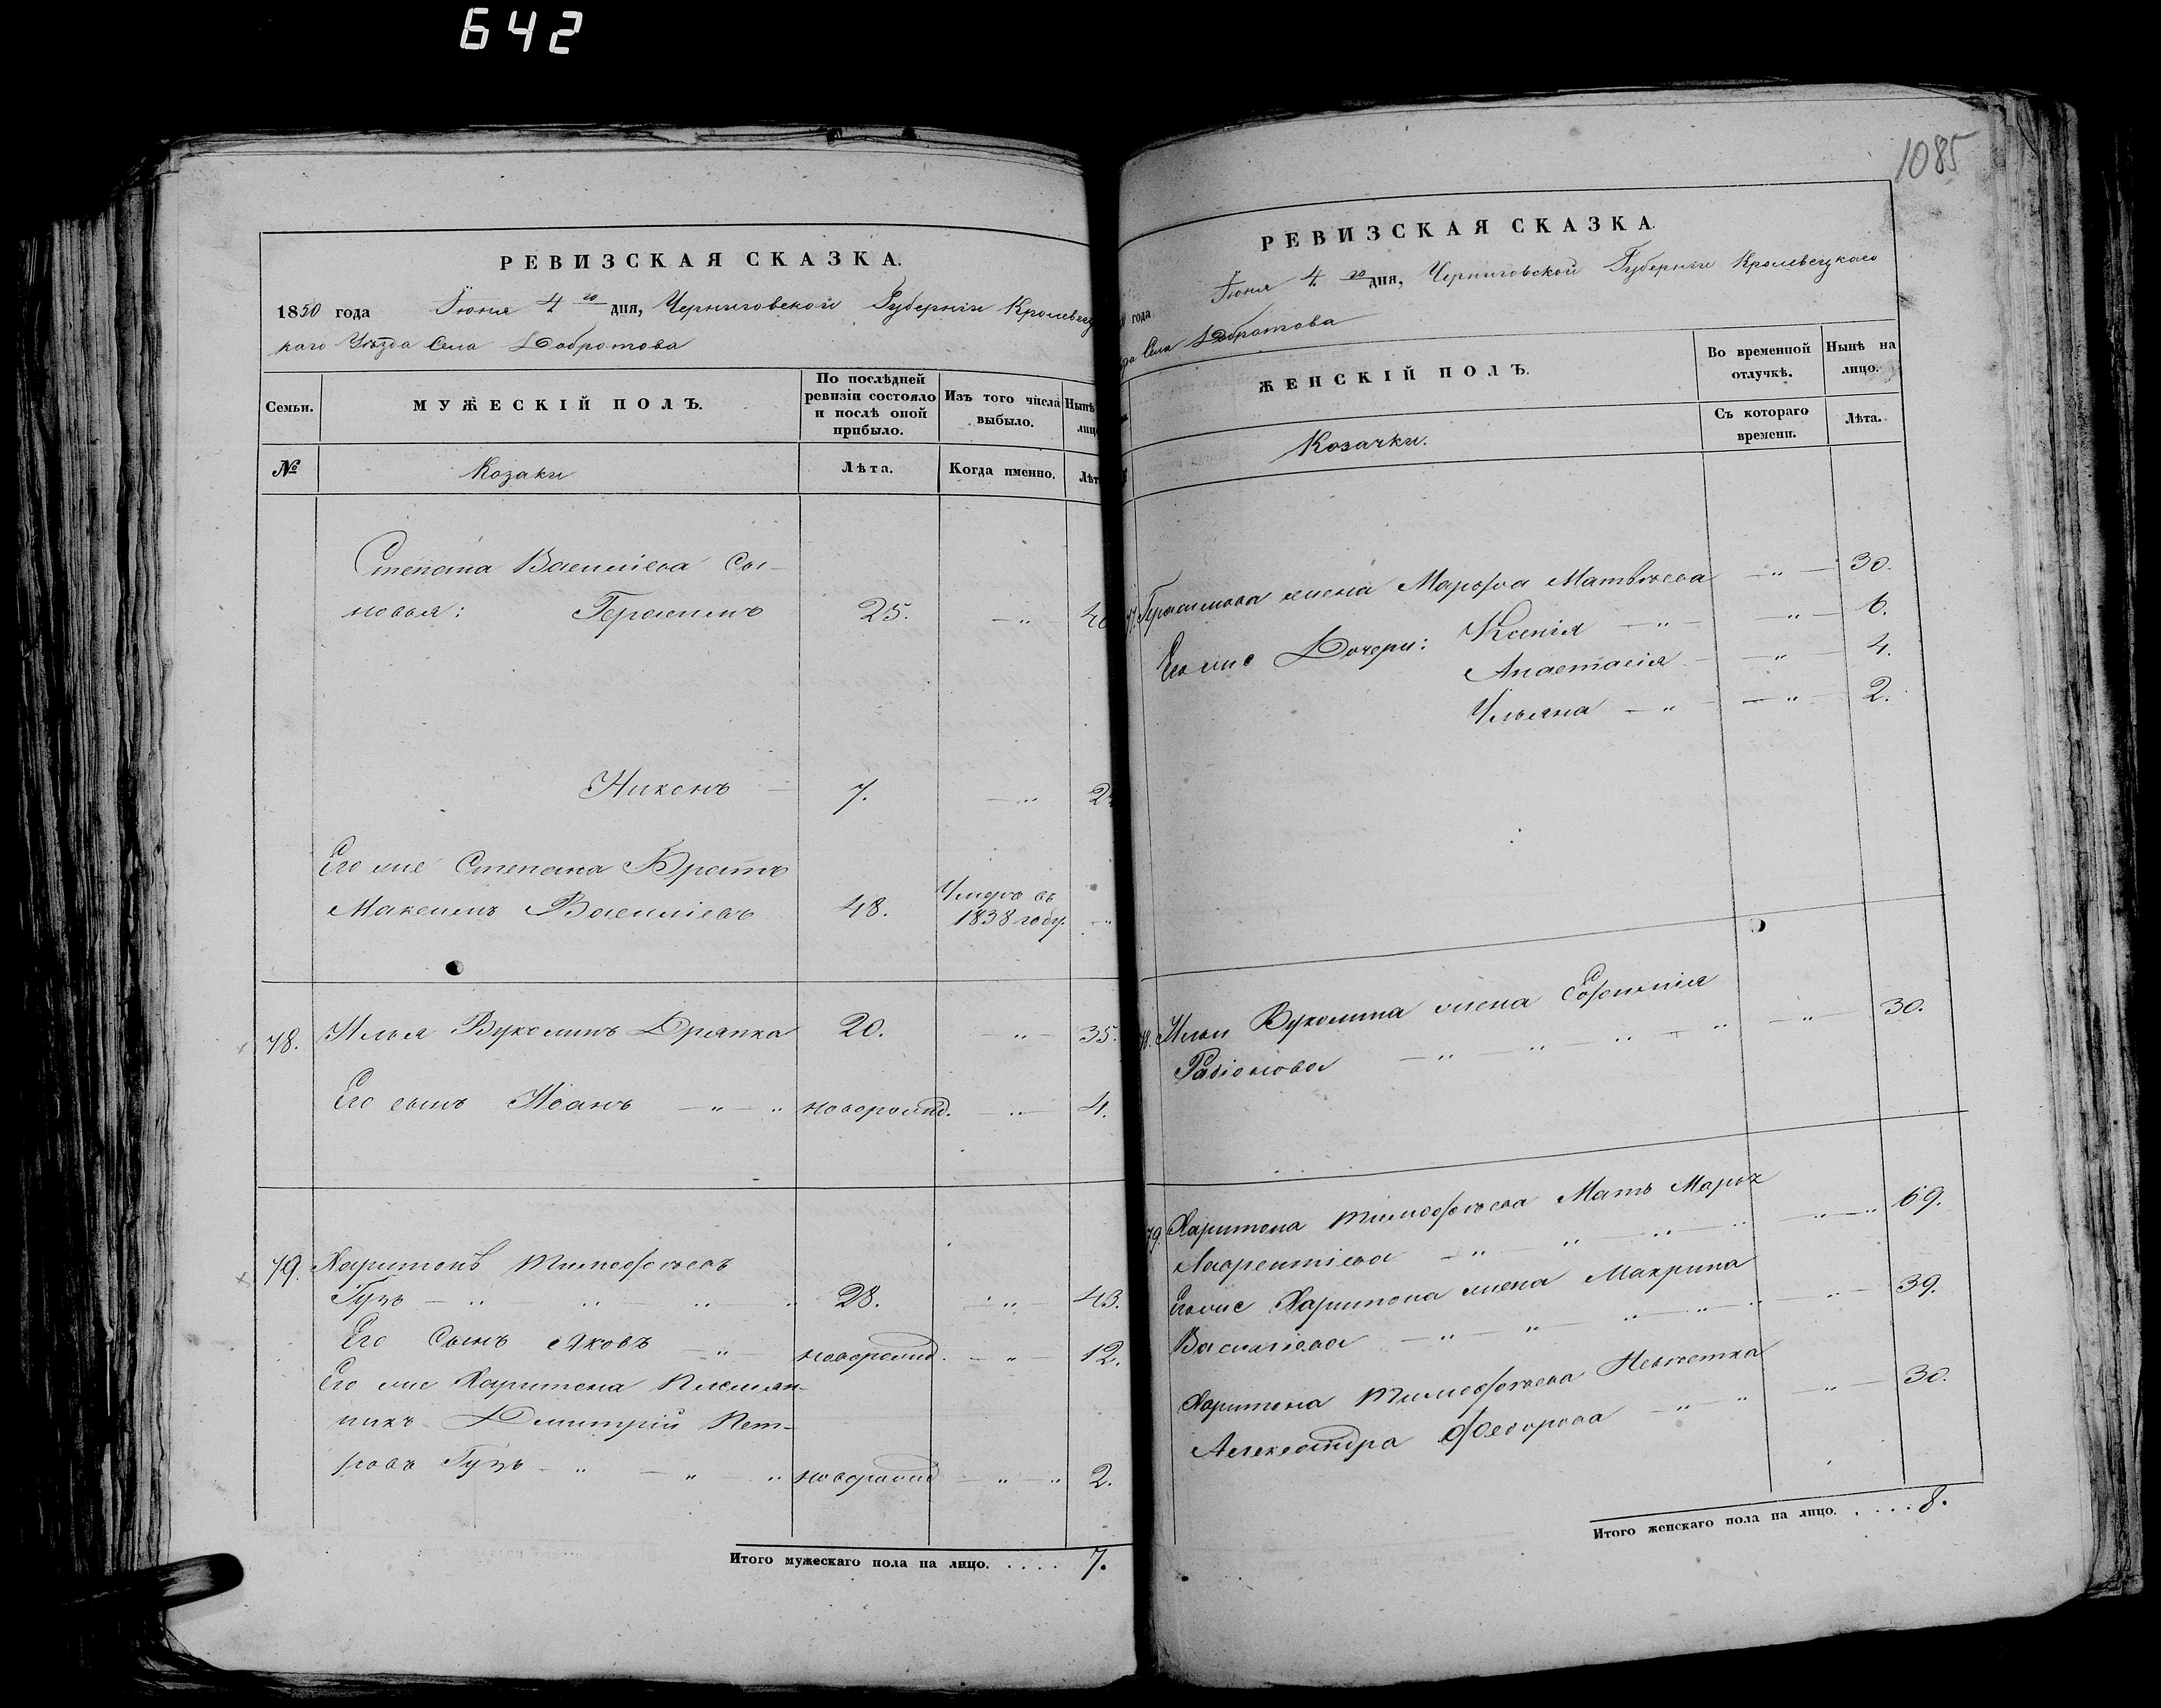 642
РЕВИЗСКАЯ СКАЗКА.
1850 года Іюня 4 го дня, Черниговской Губерніи Кролевец
каго Уѣзда Села Добротова
Семьи.
МУЖЕСКІЙ ПОЛЪ.
По послѣдней ревизіи состояло и послѣ оной прибыло.
Изъ того числа выбыло.
Нынѣ
лиц
№
Козаки
Лѣта.
Когда именно.
Лѣт
Степана Василіева Сы-
новья: Герасимъ 25. 40
Никонъ 7.
Его же Степана Братъ
Максимъ Василіевъ 48. Умеръ въ 1838 году.
78. Илья Вуколинъ Дряпка 20. 35.
Его сынъ Иванъ новорожд. 4.
79. Харитонъ Тимофѣевъ
Гузъ 28. 43.
Его Сынъ Яковъ новорожд. 12.
Его же Харитона Племян-
никъ Дмитрій Пет-
ровъ Гузъ новорожд 2.
Итого мужескаго пола на лицо. . . . . 7.
1085
РЕВИЗСКАЯ СКАЗКА.
года Іюня 4. го дня, Черниговской Губерніи Кролевецкаго
Села Добротова
ЖЕНСКІЙ ПОЛЪ.
Во временной отлучкѣ.
Нынѣ на лицо.
Козачки.
Съ котораго времени.
Лѣта.
Герасимова жена Марфа Матвѣева 30.
Его же Дочери: Ксенія 6.
Анастасія 4.
Ульяна 2.
78. Ильи Вуколина жена Евфимія
Радіонова 30.
79. Харитона Тимофѣева Мать Марья
Лаврентіева 69.
Его же Харитона жена Макрина
Василіева 39.
Харитона Тимофѣева Невѣстка
Александра Федорова 30.
Итого женскаго пола на лицо. . . . . 8.